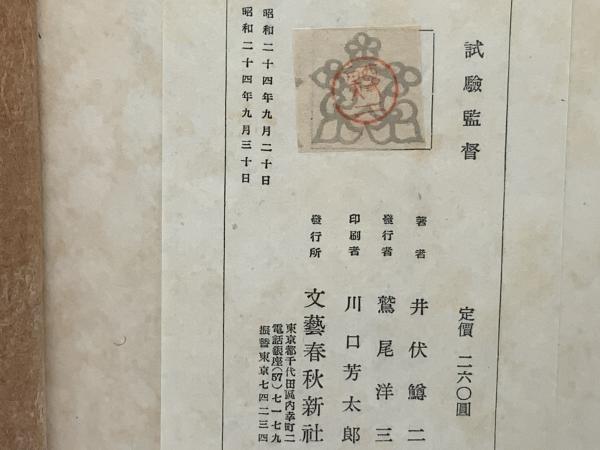 試驗監督
定價 二六〇圓
著者 井伏鱒二
發行者 鷲尾洋三
印刷者 川口芳太郎
發行所 文藝春秋新社
東京都千代田區內幸町二
電話銀座(57)七一七九
振替東京七四二三四
昭和二十四年九月二十日
昭和二十四年九月三十日